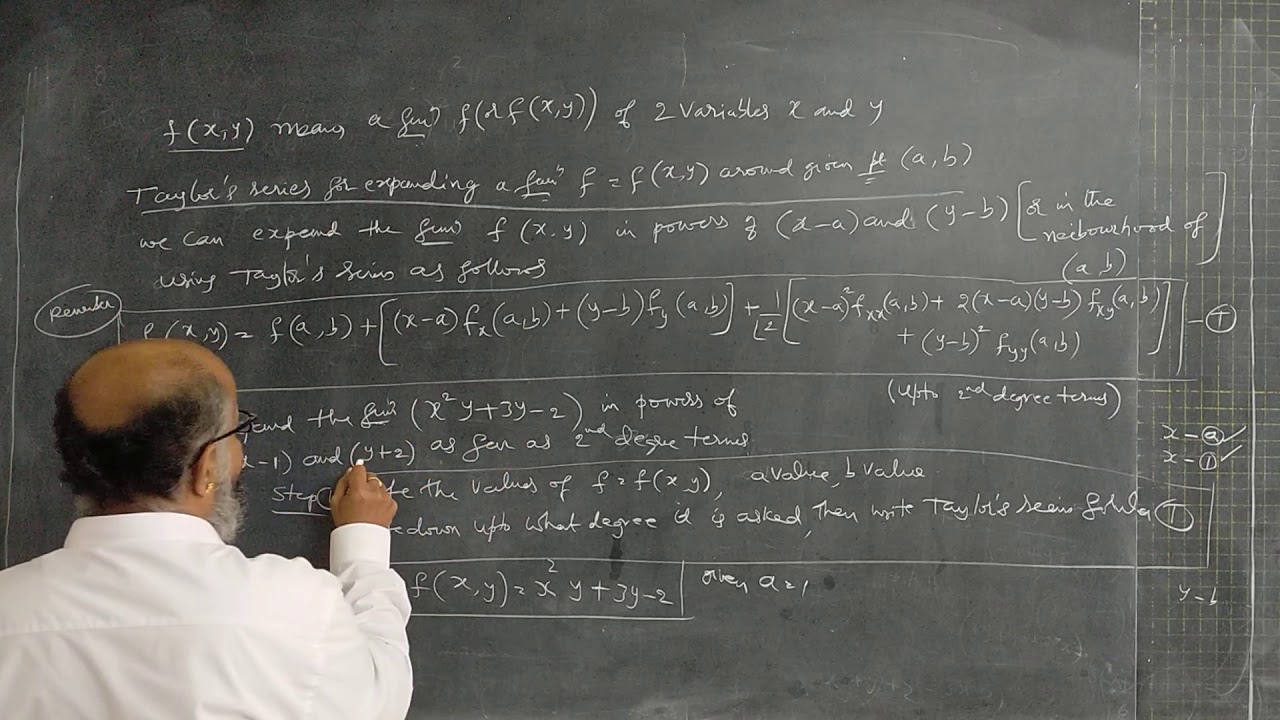 f(x,y) means a funⁿ f(or f(x,y)) of 2 variables x and y
Taylor's series for expanding a funⁿ f = f(x,y) around given pt (a,b)
we can expend the funⁿ f(x,y) in powers of (x-a) and (y-b) [or in the
neibourhood of
(a,b)]
using Taylor's series as follows
Remember
f(x,y) = f(a,b) + [(x-a) fx(a,b) + (y-b) fy(a,b)] + 1/⌊2 [(x-a)² fxx(a,b) + 2(x-a)(y-b) fxy(a,b)
+ (y-b)² fyy(a,b)] - Ⓣ
(upto 2nd degree terms)
the funⁿ (x²y+3y-2) in powers of
x-1) and (y+2) as far as 2nd degree terms
x - ⓐ ✓
x - ① ✓
Step the values of f = f(x,y), a value, b value
down upto what degree it is asked, then write Taylor's series Ⓣ
f(x,y) = x²y + 3y - 2 given a = 1
y - b